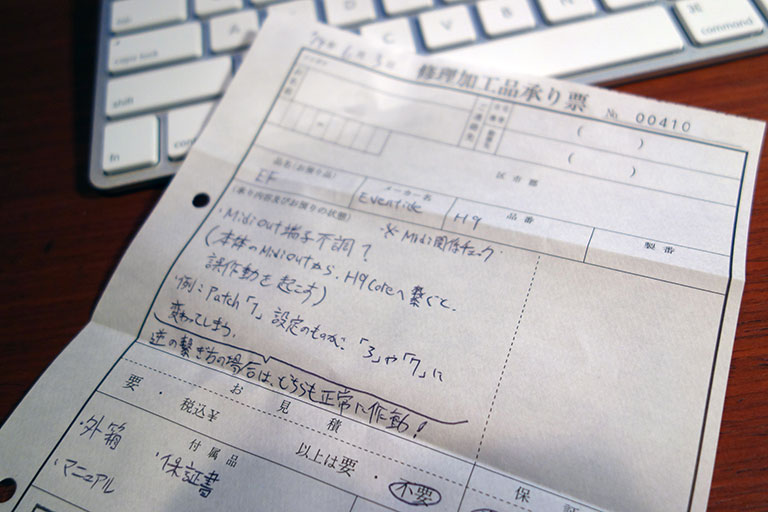 caps lock
shift
fn
Z X C V B N M
⌘ command
修理加工品承り票
№ 00410
ご連絡先
( )
( )
区市郡
品名(お預り品) メーカー名 品番 製番
EF Eventide H9
(承り内容及びお預りの状態)
※Midi関係チェック
・Midiout端子不調?
(本体のMidioutから、H9Coreへ繋ぐと、
誤作動を起こす)
・例:Patch「7」設定のものが、「3」や「7」に
変わってしまう。
逆の繋ぎ方の場合は、どちらも正常に作動!
お見積
要・税込¥ 以上は要・不要
付属品 保証
・外箱 ・保証書
・マニュアル